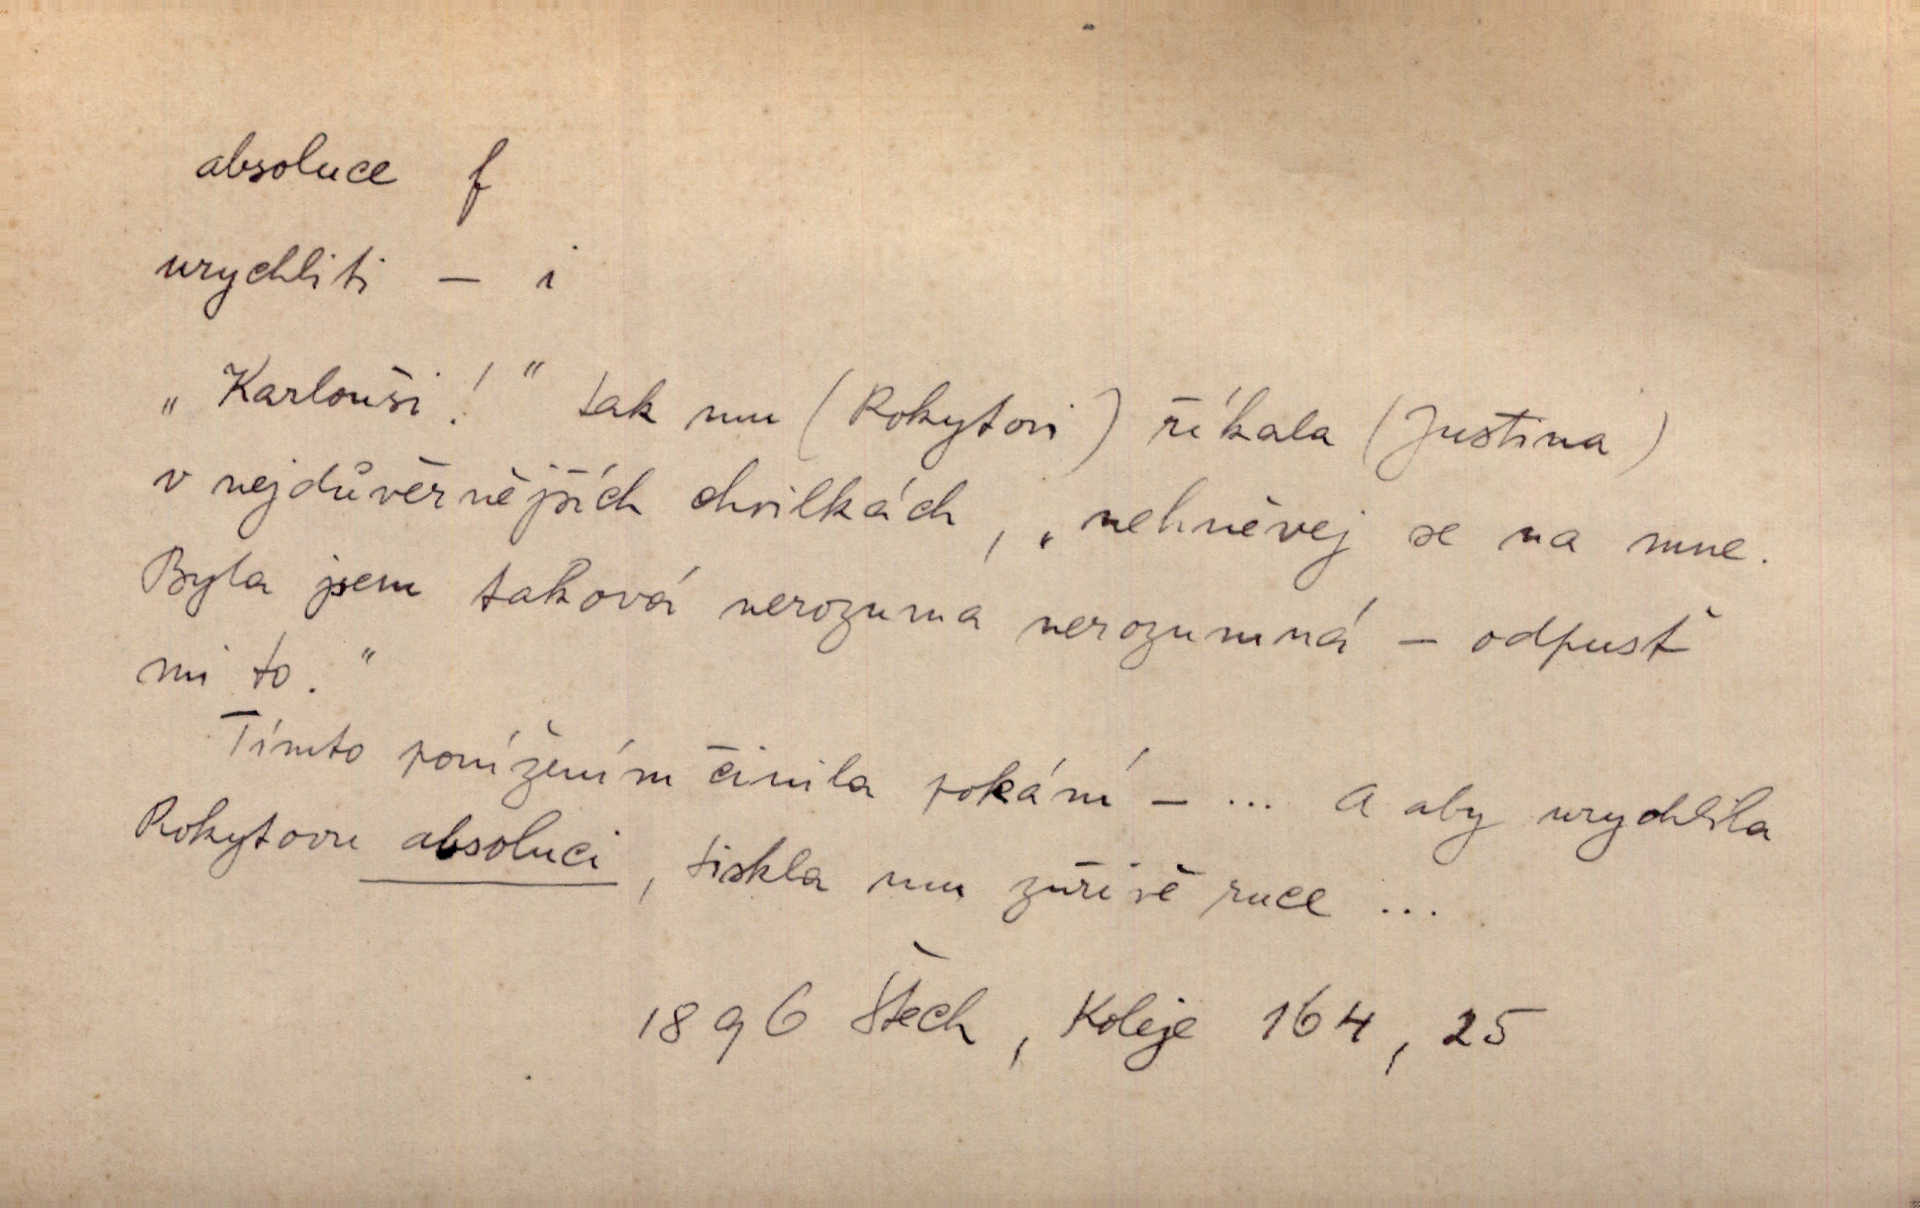 absoluce f
urychliti – i
„Karlouši!" tak mu (Rokytovi) říkala (Justina)
v nejdůvěrnějších chvilkách, „nehněvej se na mne.
Byla jsem taková nerozuma nerozumná – odpusť
mi to."
Tímto ponížením činila pokání – ... A aby urychlila
Rokytovu absoluci, tiskla mu zuřivě ruce ...
1896 Štech, Koleje 164, 25